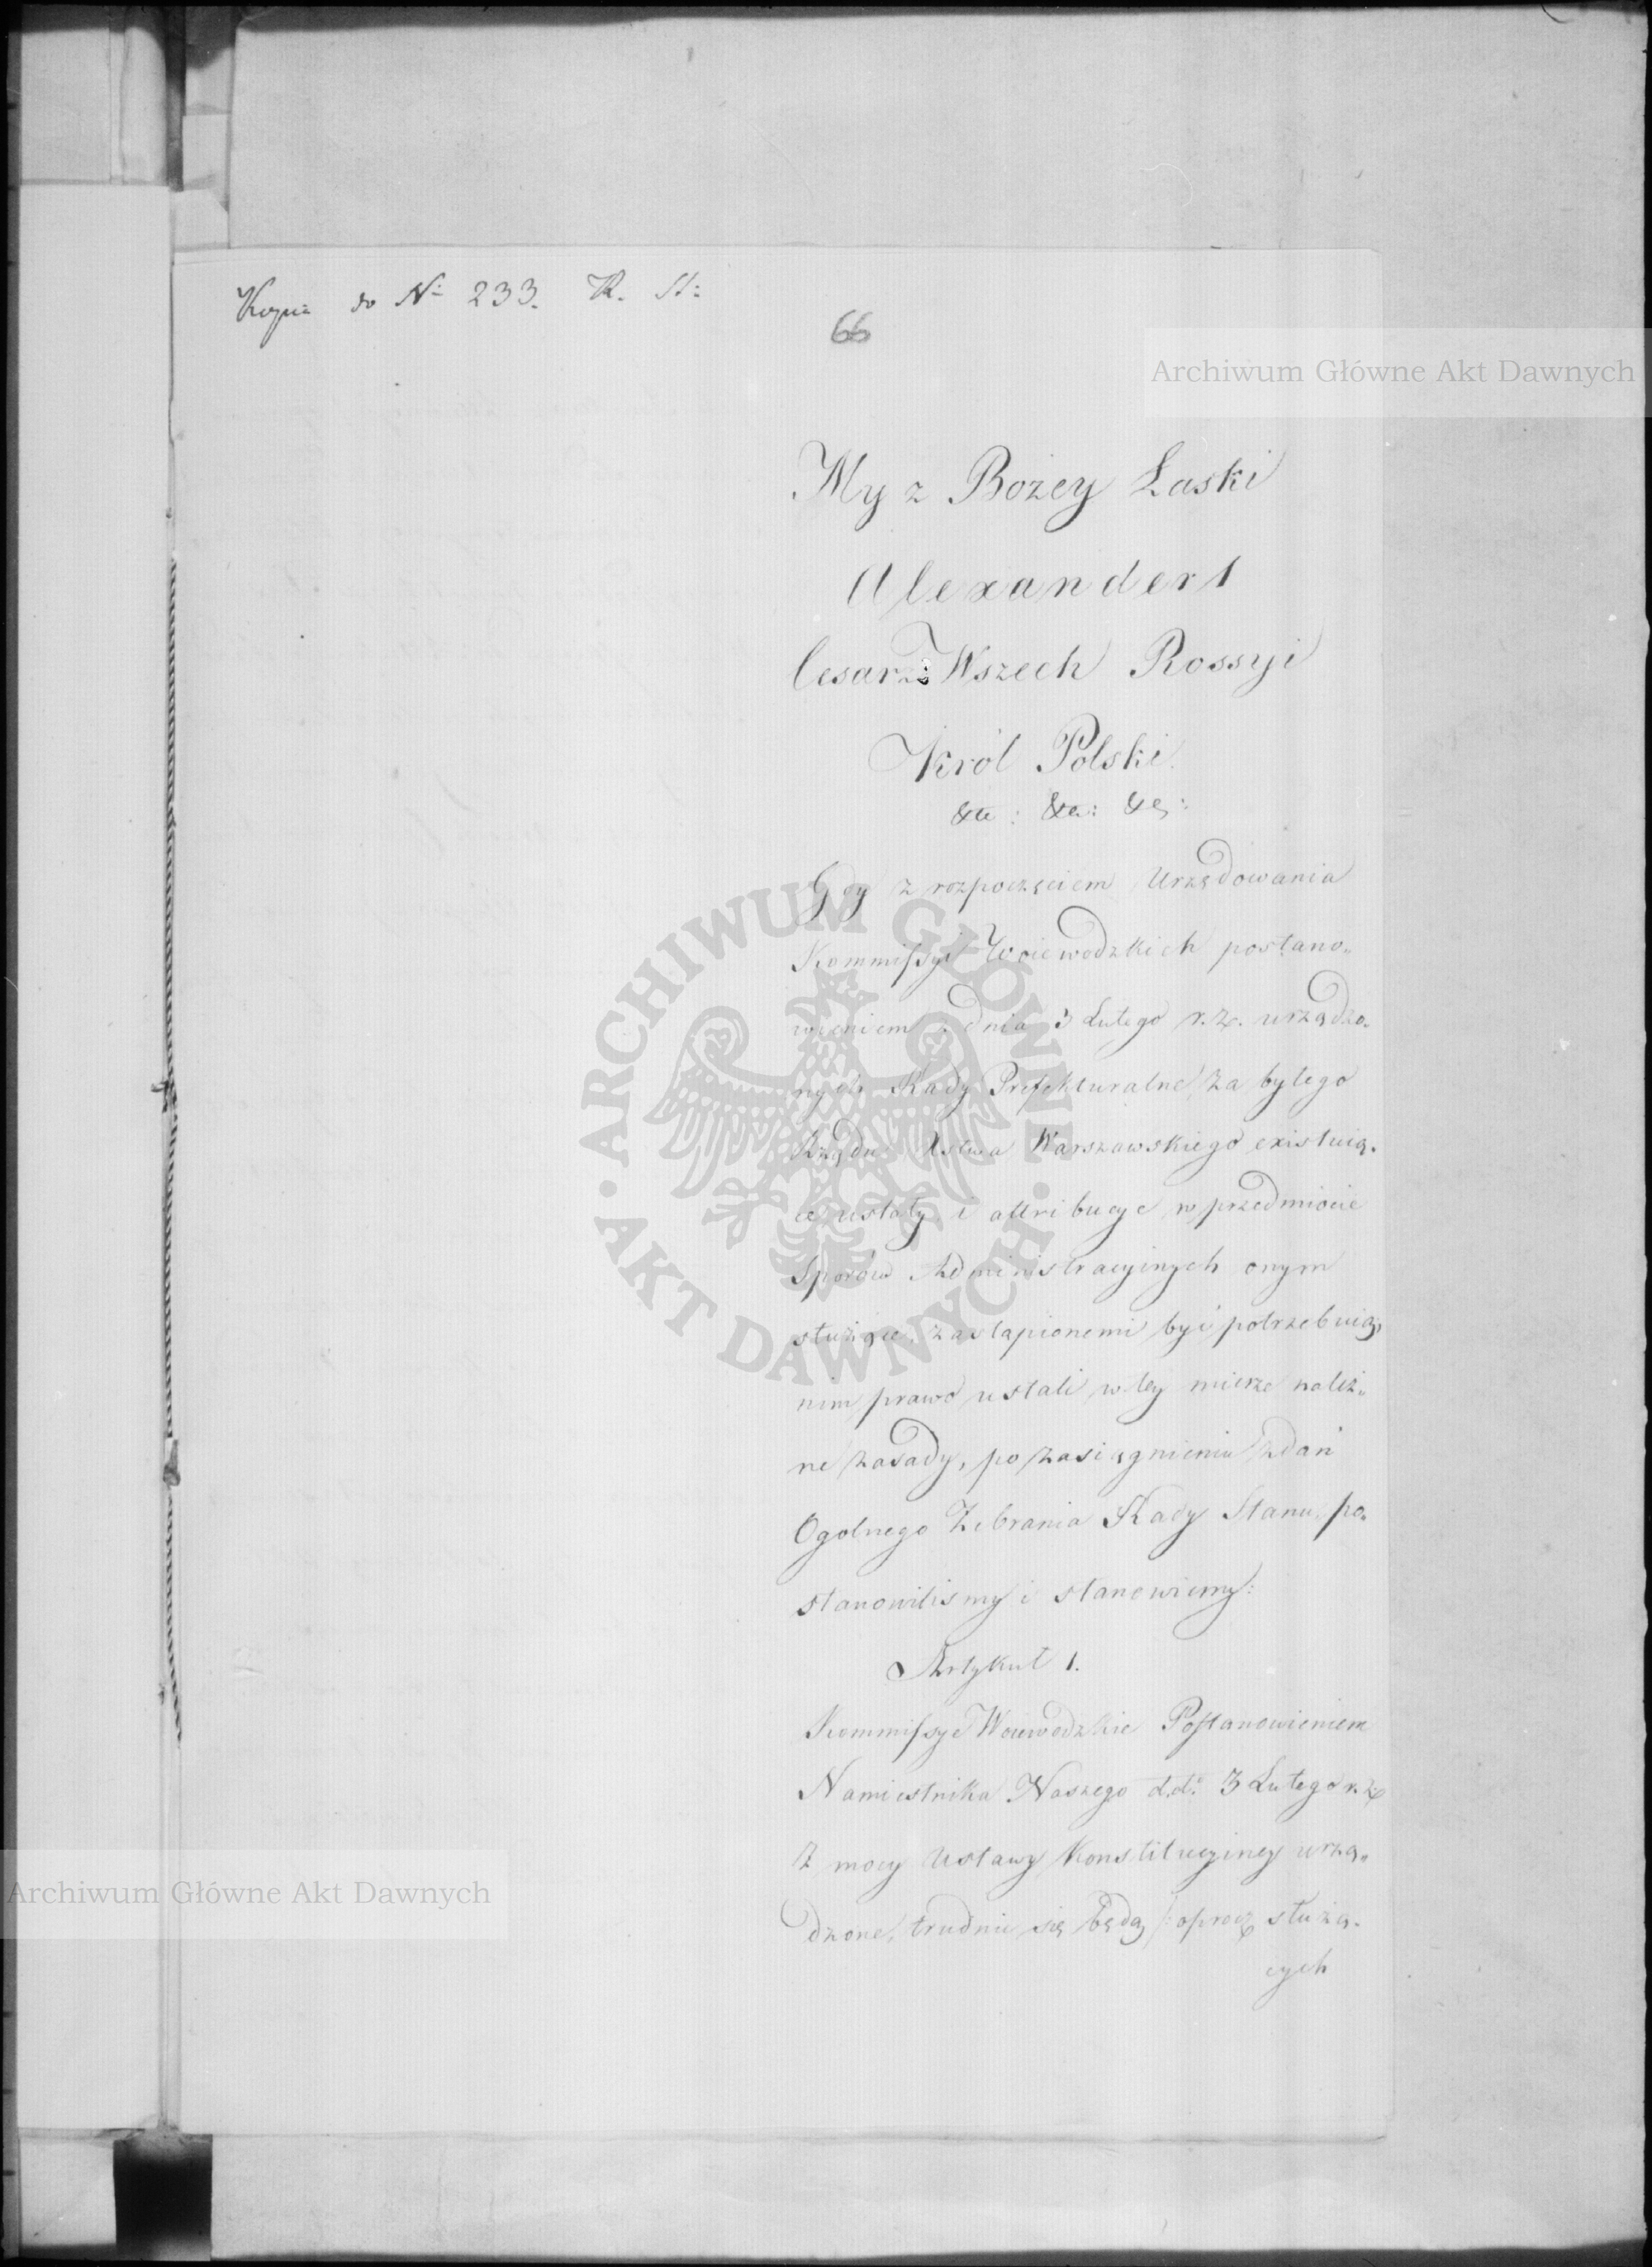 Kopia do Nº 233. R. St:
66
Archiwum Główne Akt Dawnych
My z Bożey Łaski
Alexander 1
Cesarz Wszech Rossyi
Król Polski
&ta: &ta: &a:
Gdy z rozpoczęciem Urzędowania
Kommissyi Woiewodzkich postano„
wieniem z dnia 3 Lutego r.z. urządzo„
nych Rady Prefekturalne za byłego
Rządu Xstwa Warszawskiego existuią„
ce ustały i attribucye w przedmiocie
Sporów Administracyinych onym
służące, zastąpionemi być potrzebuią,
nim prawo ustali w tey mierze należ„
ne zasady, po zasiągnieniu zdań
Ogolnego Zebrania Rady Stanu, po„
stanowilismy i stanowiemy:
Artykuł 1.
Kommissye Woiewodzkie Postanowieniem
Namiestnika Naszego d.d. 3 Lutego r.z.
z mocy Ustawy Konstitucyiney urzą„
dzone, trudnić się będą /: oprocz służą„
cych
ARCHIWUM GŁÓWNE · AKT DAWNYCH ·
Archiwum Główne Akt Dawnych